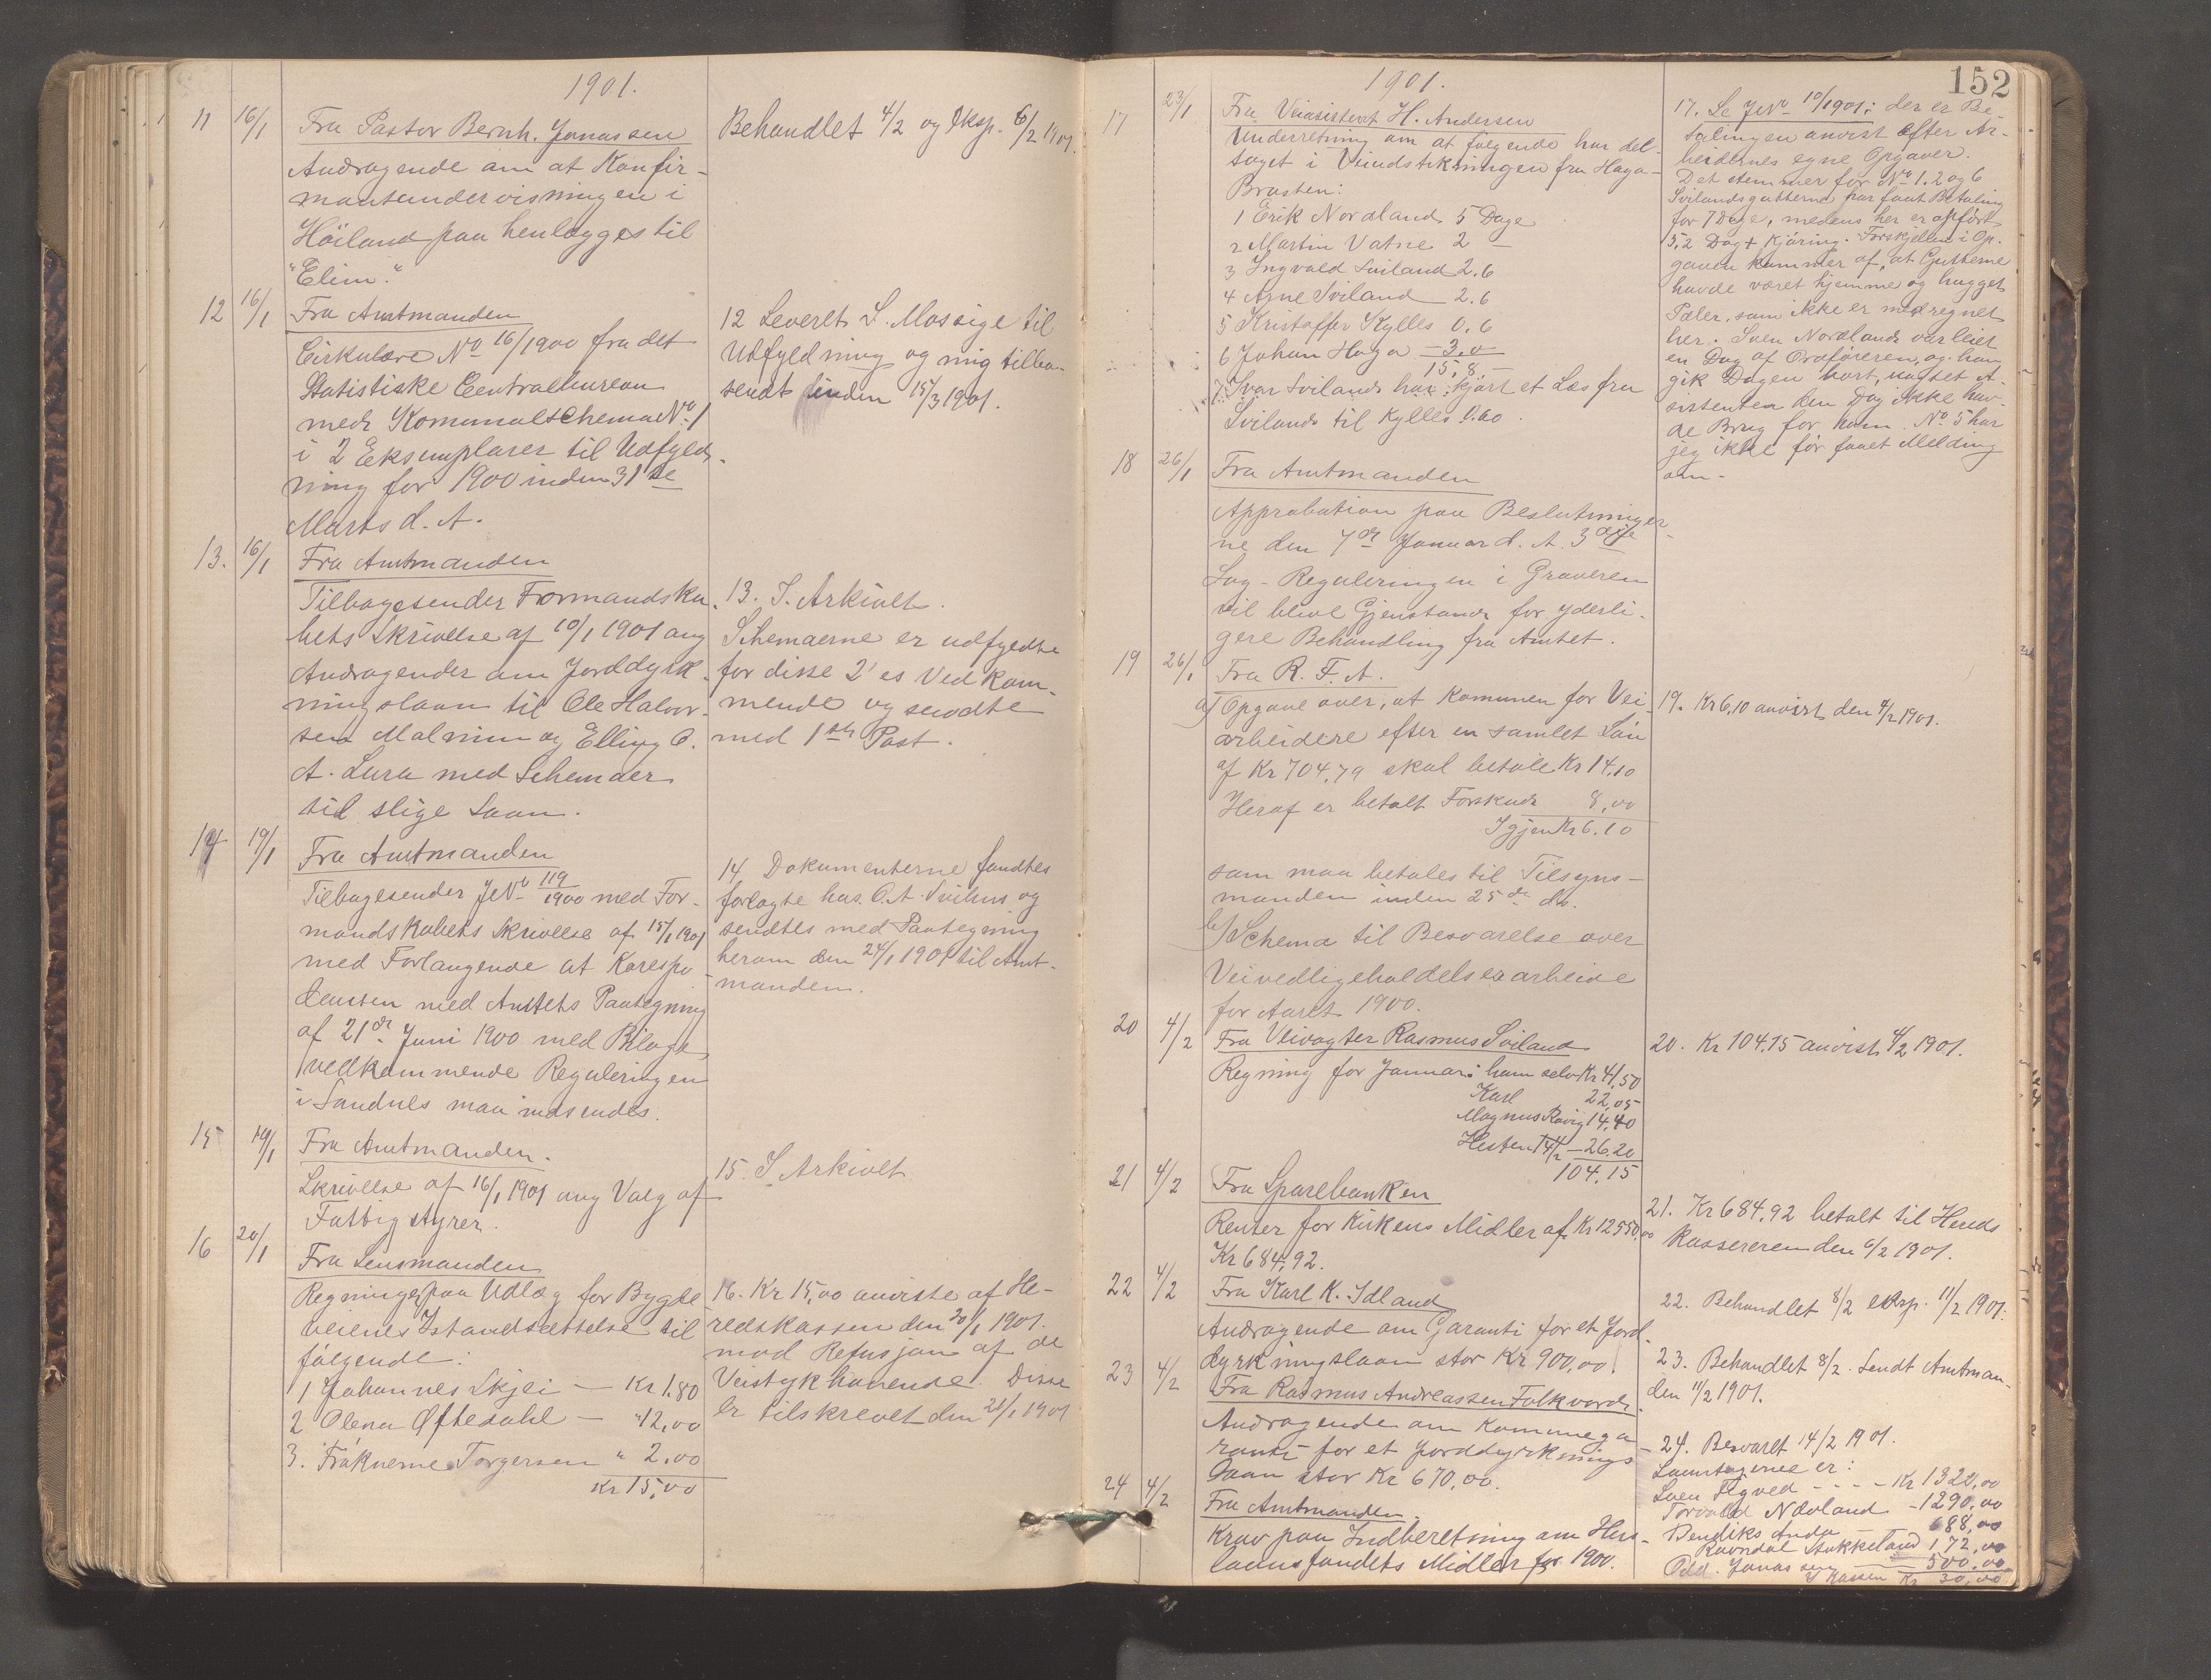 1901.
11 16/1 Fra Pastor Bernh. Jonassen
Andragende om at Konfir-
mantundervisningen i
Höiland paa henlægges til
"Elim".
Behandlet 4/2 og Eksp. 6/2 1901.
12 16/1 Fra Amtmanden
Cirkulære No 16/1900 fra det
Statistiske Centralbureau
med Kommunalschema No 1
i 2 Eksemplarer til Udfyld-
ning for 1900 inden 31te
Marts d. A.
12 Leveret S. Mossige til
Udfyldning og mig tilba-
sendt inden 15/3 1901.
13. 16/1 Fra Amtmanden
Tilbagesender Formandska-
bets Skrivelse af 10/1 1901 ang
Andragender om Jorddyrk-
ningslaan til Ole Halvor-
sen Malmim og Elling O.
A. Lura med Schemaer
til slige Laan.
13. I Arkivet.
Schemaerne er udfyldte
for disse 2' es Vedkom-
mende og sendte
med 1ste Post.
14 19/1 Fra Amtmanden
Tilbagesender JNo 119/1900 med For-
mandskabets Skrivelse af 15/1 1901
med Forlangende at Korespo-
densen med Amtets Paategning
af 21de Juni 1900 med Bilage,
vedkommende Reguleringen
i Sandnes maa indsendes.
14. Dokumenterne fandtes
forlagte hos O. A. Svihus og
sendtes med Paategning
herom den 24/1 1901 til Amt-
manden.
15 19/1 Fra Amtmanden.
Skrivelse af 16/1 1901 ang Valg af
Fattigstyrer.
15. I Arkivet
16 20/1 Fra Lensmanden
Regninger paa Udlæg for Bygde
veienes Istandsættelse til
følgende:
1 Johannes Skjei — Kr 1.80
2 Olena Øftedahl — " 12,00
3. Frøknerne Torgersen " 2.00
Kr 15,00
16. Kr 15,00 anviste af He-
redskassen den 20/1 1901.
mod Refusjon af de
Veistykhavende. Disse
er tilskrevet den 21/1 1901
152
1901.
17 23/1 Fra Veiasistent H. Andersen
Underretning om at følgende har del-
taget i Veiudstikningen fra Haga-
Brasten:
1 Erik Nordland 5 Dage
2 Martin Vatne 2 —
3 Ingvald Sviland 2.6
4 Arne Sviland 2.6
5 Kristoffer Kylles 0.6
6 Johan Haga 3,0
15,8.—
7. Ivar Sviland har kjørt et Læs fra
Sviland til Kylles 0.60.
17. Se JNo 10/1901: der er Be-
talingen anvist efter Ar-
beidernes egne Opgaver.
Det stemmer for No 1. 2 og 6
Svilandsgutterne har faaet Betaling
for 7 Dage, medens her er opført
5,2 Dag + Kjøring. Forskjellen i Op-
gaven kommer af, at Gutterne
havde været hjemme og hugget
Pæler, som ikke er medregnet
her. Sven Nordland var leiet
en Dag af Ordføreren, og han
gik Dagen bort, uagtet A-
sistenten den Dag ikke hav-
de Brug for ham. No 5 har
jeg ikke før faaet Melding
om-
18 26/1 Fra Amtmanden
Approbation paa Beslutninger-
ne den 7de Januar d. A. 3die
Sag - Reguleringen i Graveren
vil blive Gjenstand for yderli-
gere Behandling fra Amtet.
19 26/1 Fra R. F. A.
a) Opgave over, at Kommunen for Vei-
arbeidere efter en samlet Løn
af Kr 704,79 skal betale Kr 14.10
Heraf er betalt Forskud 8,00
Igjen Kr 6.10
som maa betales til Tilsyns-
manden inden 25de ds.
b) Schema til Besvarelse over
Veivedligeholdelsesarbeide
for Aaret 1900.
19. Kr 6,10 anvist den 4/2 1901.
20 4/2 Fra Veivogter Rasmus Sviland
Regning for Januar: ham selv Kr 41,50
Karl 22,05
Magnus Rovig 14,40
Hesten 14 1/2 — 26.20
104,15
20. Kr 104,15 anvist 4/2 1901.
21 4/2 Fra Sparebanken
Renter for Kirkens Midler af Kr 12550,00
Kr 684,92.
21. Kr 684,92 betalt til Herreds
Kassereren den 6/2 1901.
22 4/2 Fra Karl K. Idland
Andragende om Garanti for et Jord-
dyrkningslaan stor Kr 900,00.
22. Behandlet 8/2 eksp. 11/2 1901.
23 4/2 Fra Rasmus Andreassen Folkvord.
Andragende om Kommunega-
ranti for et Jorddyrknings
Laan stor Kr 670,00.
23. Behandlet 8/2. Sendt Amtman-
den 11/2 1901.
24 4/2 Fra Amtmanden.
Krav paa Indberetning om Hus-
laansfondets Midler for 1900.
24. Besvaret 14/2 1901.
Laantagerne er:
Sven Tegved - - - - Kr 1320,00
Torvald Nævland - 1290,00
Bendiks Anda — 688,00
Ravndal Stokkeland 172,00
Odd. Jonassen — 500,00
I Kassen Kr 30,00